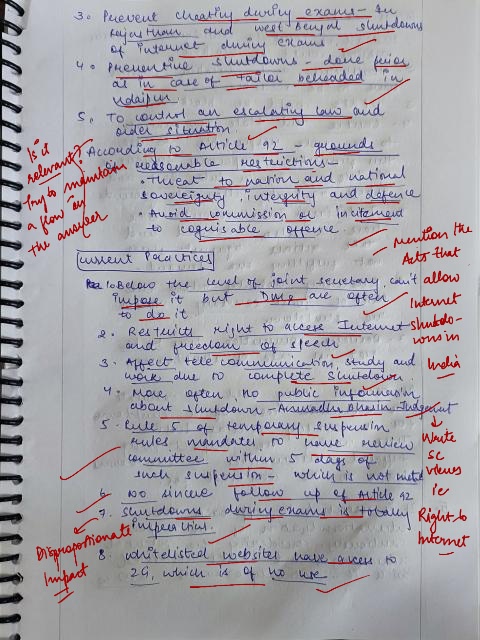 3. Prevent cheating during exams - In
Rajasthan and West Bengal shutdowns
of internet during exams
4. Preventive shutdowns - done prior
as in case of Tailor beheaded in
Udaipur.
5. To control an escalating law and
order situation
According to Article 92 - grounds
of reasonable restrictions -
• Threat to nation and national
sovereignty, integrity and defence
• Avoid commission or incitement
to cognisable offence
Is it
relevant?
Try to maintain
a flow in
the answer
mention the
Acts that
allow
Internet
shutdo-
wns in
India
Current Practices
1. Below the level of joint secretary can't
impose it but DMs are often
to do it
2. Restricts right to access Internet
and freedom of speech
3. Affect tele communication, study and
work due to complete shutdown
4. More often, no public information
about shutdown - Anuradha Bhasin Judgement
5. Rule 5 of temporary suspension
rules mandates to have review
committee within 5 days of
such suspension - which is not met
6. No sincere follow up of Article 92
7. Shutdowns during exams is totally
impractical
8. Whitelisted websites have access to
2G, which is of no use
Write
SC
views
ie
Right to
Internet
Disproportionate
Impact